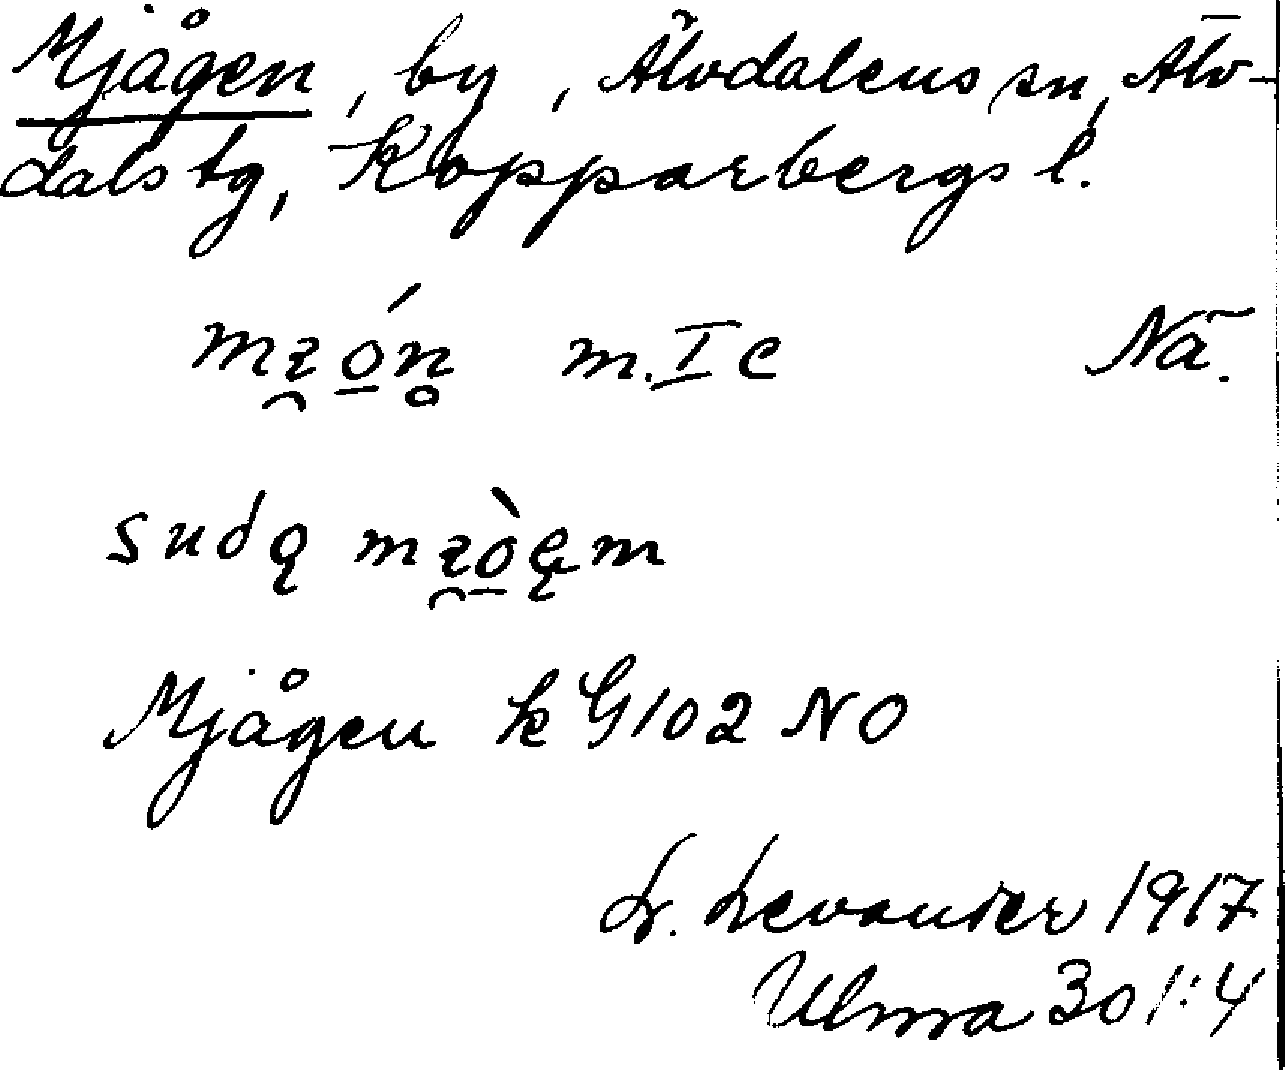 Mjågen, by, Älvdalens sn, Älv-
dals tg, Kopparbergs l.
m. I c Nä.
Mjågen k G 102 NO
L. Levander 1917
Ulma 301:4